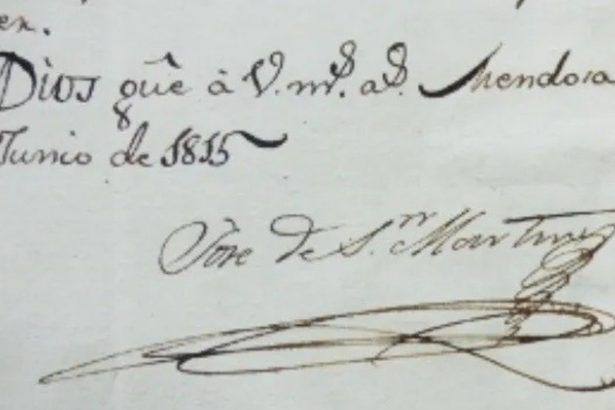 en.
Dios gũe à V. mṣ. aṣ. Mendoza
8
Junio de 1815
Jose de Sn Martin